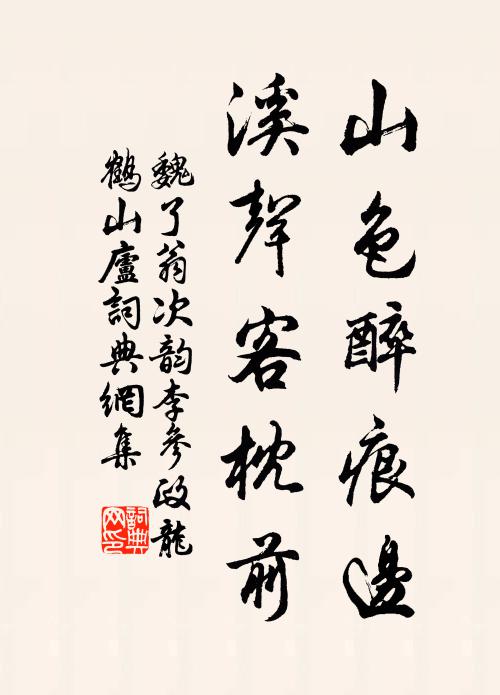 山色醉痕邊
溪聲客枕前
魏了翁次韵李參政龍
鶴山廬詞典網集
詞典網印